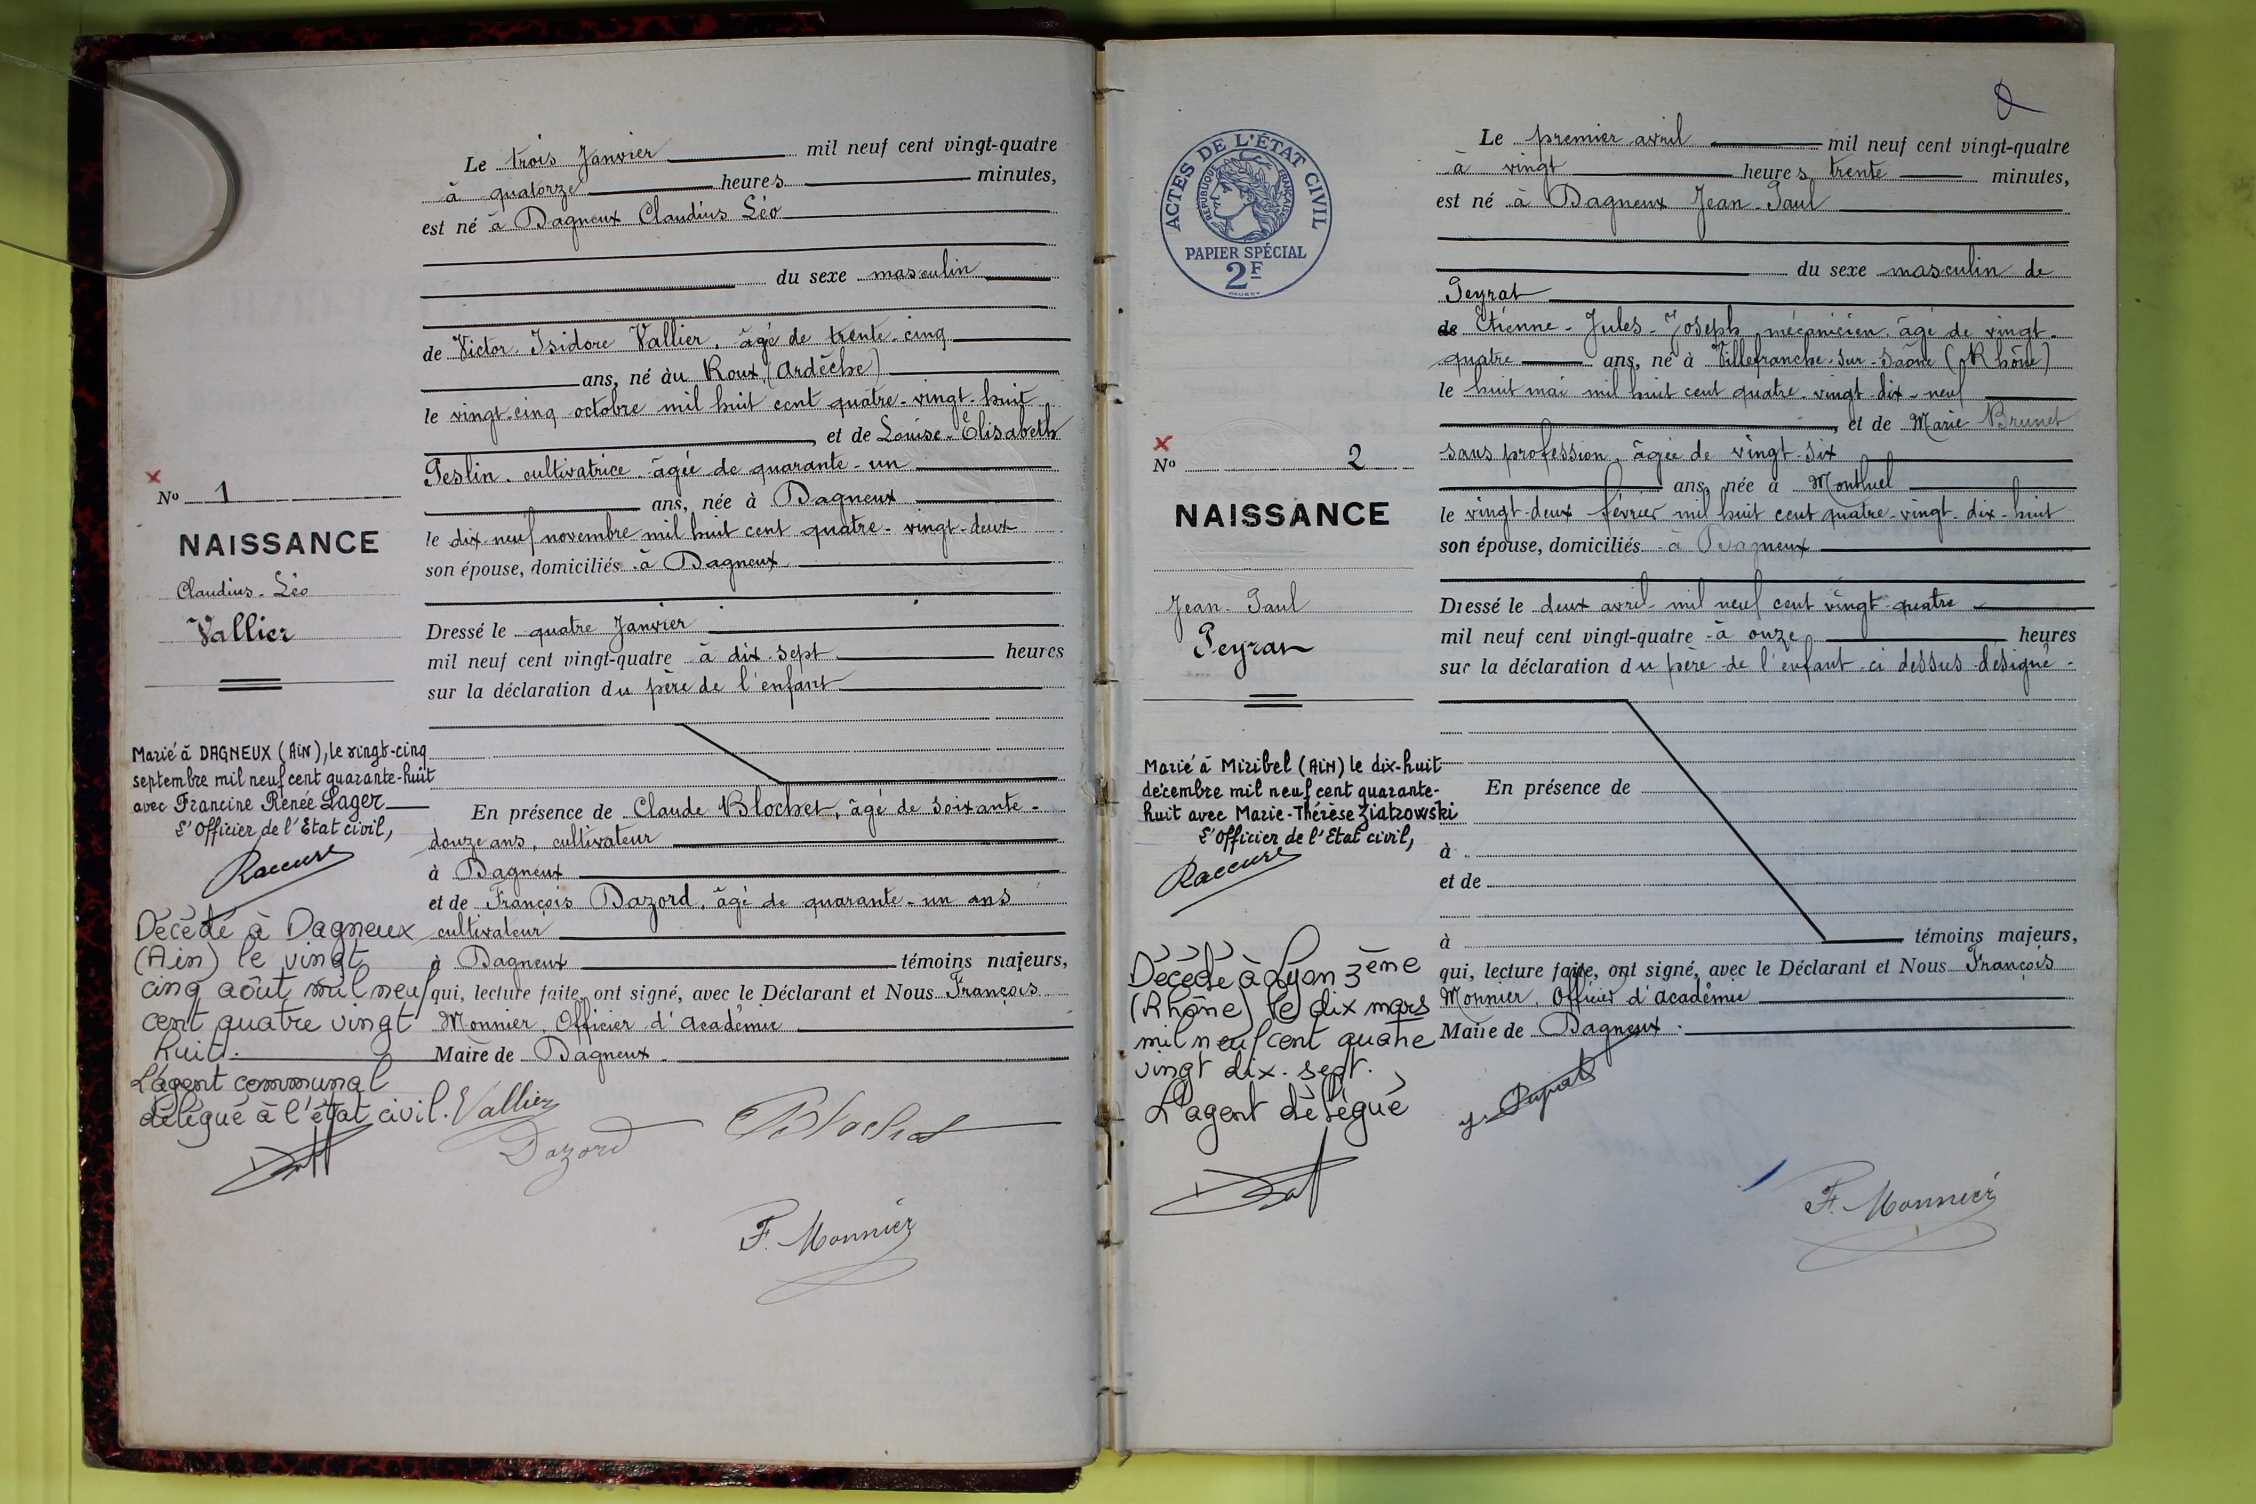 Le trois Janvier mil neuf cent vingt-quatre
à quatorze heures minutes,
est né à Dagneux Claudius Léo
du sexe masculin
de Victor Isidore Vallier, âgé de trente-cinq
ans, né àu Roux (Ardèche)
le vingt-cinq octobre mil huit cent quatre-vingt-huit
et de Louise-Élisabeth
Peslin, cultivatrice, âgée de quarante-un
ans, née à Dagneux
le dix neuf novembre mil huit cent quatre-vingt-deux
son épouse, domiciliés à Dagneux
Dressé le quatre Janvier
mil neuf cent vingt-quatre à dix-sept heures
sur la déclaration du père de l'enfant
En présence de Claude Blochet, âgé de soixante-
douze ans, cultivateur
à Dagneux
et de François Dazord, âgé de quarante-un ans
cultivateur
à Dagneux témoins majeurs,
qui, lecture faite, ont signé, avec le Déclarant et Nous François
Monnier, Officier d'académie
Maire de Dagneux
Vallier
Dazord
Blochet
F. Monnier
No 1
NAISSANCE
Claudius-Léo
Vallier
Marié à DAGNEUX (AIN), le vingt-cinq
septembre mil neuf cent quarante-huit
avec Francine Renée Lager
L'Officier de l'Etat civil,
Décédé à Dagneux
(Ain) le vingt
cinq août mil neuf
cent quatre vingt
huit.
L'agent communal
délégué à l'état civil.
2
ACTES DE L'ÉTAT CIVIL
RÉPUBLIQUE FRANÇAISE
PAPIER SPÉCIAL
2F
Le premier avril mil neuf cent vingt-quatre
à vingt heures trente minutes,
est né à Dagneux Jean-Paul
du sexe masculin de
Peyrat
de Etienne-Jules-Joseph, mécanicien, âgé de vingt-
quatre ans, né à Villefranche-sur-Saône (Rhône)
le huit mai mil huit cent quatre-vingt-dix-neuf
et de Marie Brunet
sans profession, âgée de vingt-six
ans, née à Montluel
le vingt-deux février mil huit cent quatre-vingt-dix-huit
son épouse, domiciliés à Dagneux
Dressé le deux avril mil neuf cent vingt-quatre
mil neuf cent vingt-quatre à onze heures
sur la déclaration du père de l'enfant ci dessus désigné
En présence de
à
et de
à témoins majeurs,
qui, lecture faite, ont signé, avec le Déclarant et Nous François
Monnier, Officier d'académie
Maire de Dagneux
F. Monnier
No 2
NAISSANCE
Jean-Paul
Peyrat
Marié à Miribel (AIN) le dix-huit
décembre mil neuf cent quarante-
huit avec Marie-Thérèse Ziatkowski
L'Officier de l'Etat civil,
Décédé à Lyon 3ème
(Rhône) le dix mars
mil neuf cent quatre
vingt dix-sept.
L'agent délégué